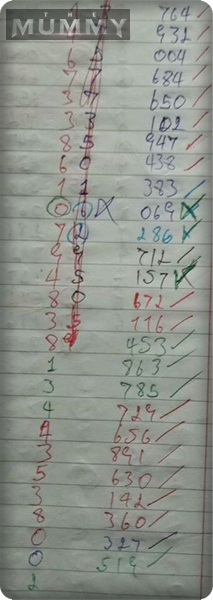 THE
MUMMY
764
7 932
6 5 004
7 7 684
3 7 650
3 3 102
8 5 947
6 0 438
1 1 383
0 6 069
7 2 286
9 9 712
4 5 157
8 0 672
3 5 116
8 453
1 863
3 785
4 729
1 656
3 891
5 630
3 142
8 360
0 327
0 519
2